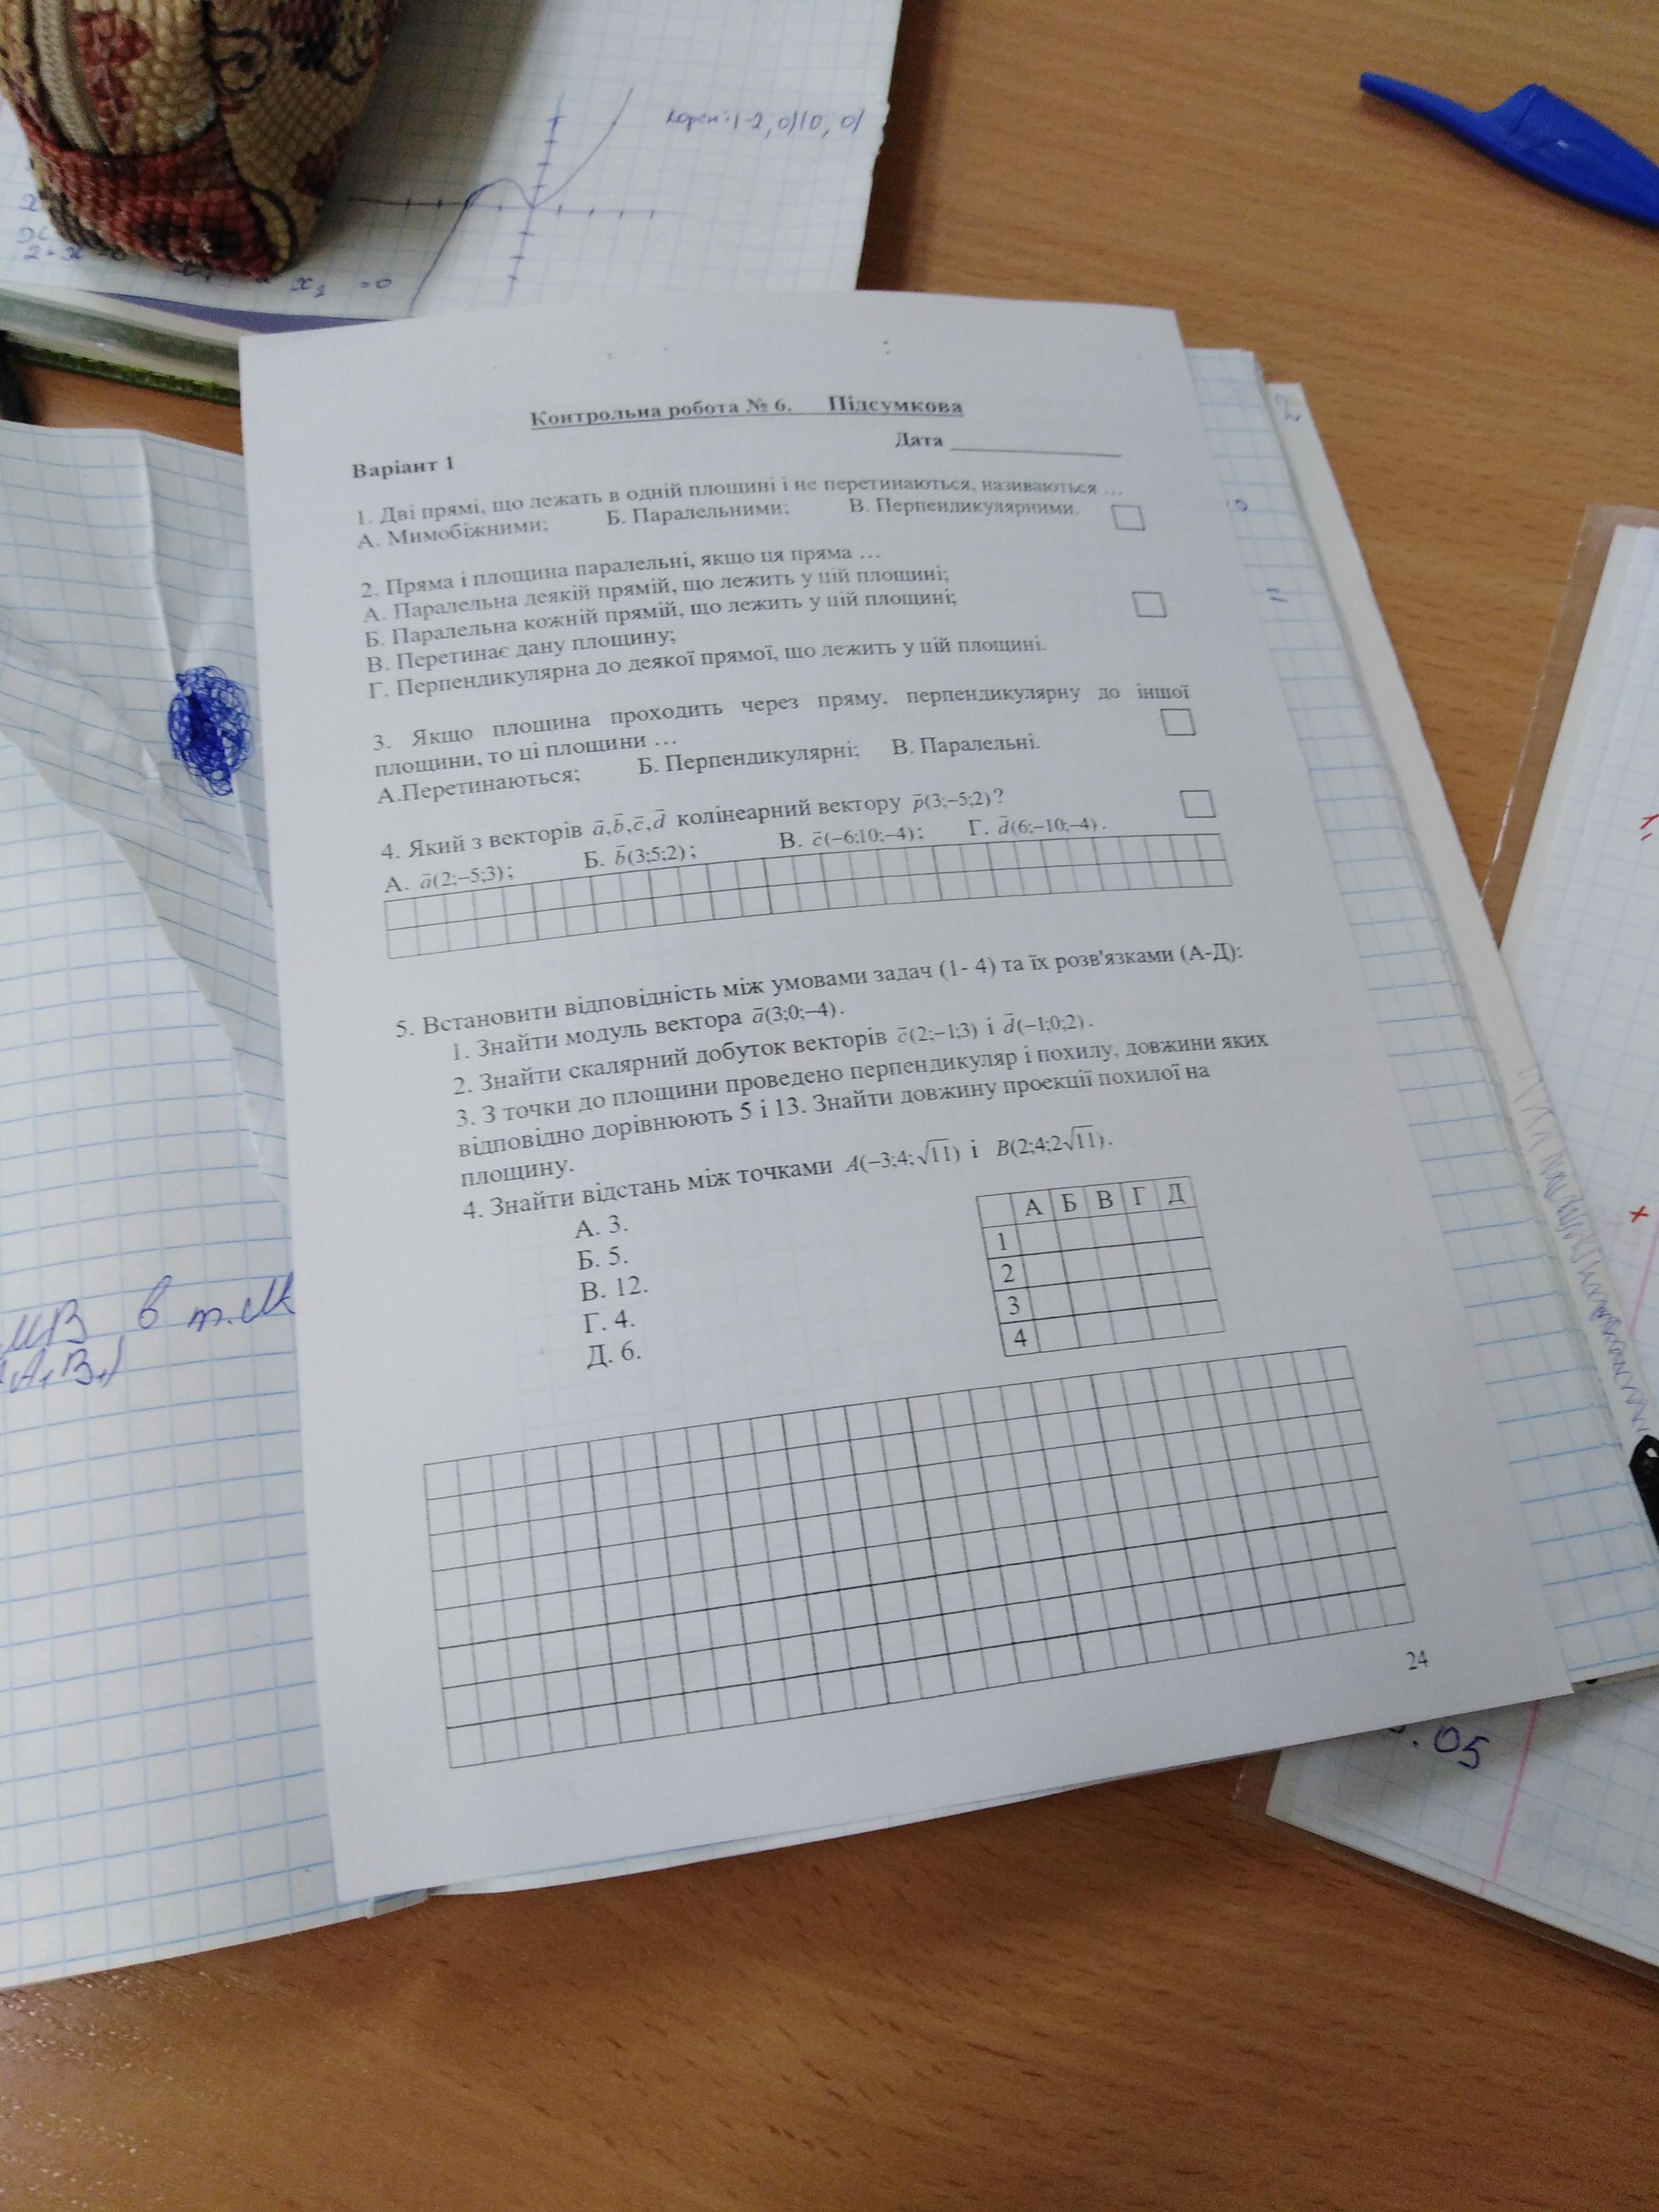 корені: (-2; 0) (0; 0)
x₂ = 0
Контрольна робота № 6. Підсумкова
Дата ____________
Варіант 1
1. Дві прямі, що лежать в одній площині і не перетинаються, називаються …
А. Мимобіжними; Б. Паралельними; В. Перпендикулярними.
2. Пряма і площина паралельні, якщо ця пряма …
А. Паралельна деякій прямій, що лежить у цій площині;
Б. Паралельна кожній прямій, що лежить у цій площині;
В. Перетинає дану площину;
Г. Перпендикулярна до деякої прямої, що лежить у цій площині.
3. Якщо площина проходить через пряму, перпендикулярну до іншої
площини, то ці площини …
А.Перетинаються; Б. Перпендикулярні; В. Паралельні.
4. Який з векторів a̅,b̅,c̅,d̅ колінеарний вектору p̅(3;–5;2)?
А. a̅(2;–5;3); Б. b̅(3;5;2); В. c̅(–6;10;–4); Г. d̅(6;–10;–4).
5. Встановити відповідність між умовами задач (1- 4) та їх розв'язками (А-Д):
1. Знайти модуль вектора a̅(3;0;–4).
2. Знайти скалярний добуток векторів c̅(2;–1;3) і d̅(–1;0;2).
3. З точки до площини проведено перпендикуляр і похилу, довжини яких
відповідно дорівнюють 5 і 13. Знайти довжину проекції похилої на
площину.
4. Знайти відстань між точками A(–3;4;√11) і B(2;4;2√11).
А. 3.
Б. 5.
В. 12.
Г. 4.
Д. 6.
А Б В Г Д
1
2
3
4
24
в т.М
.05